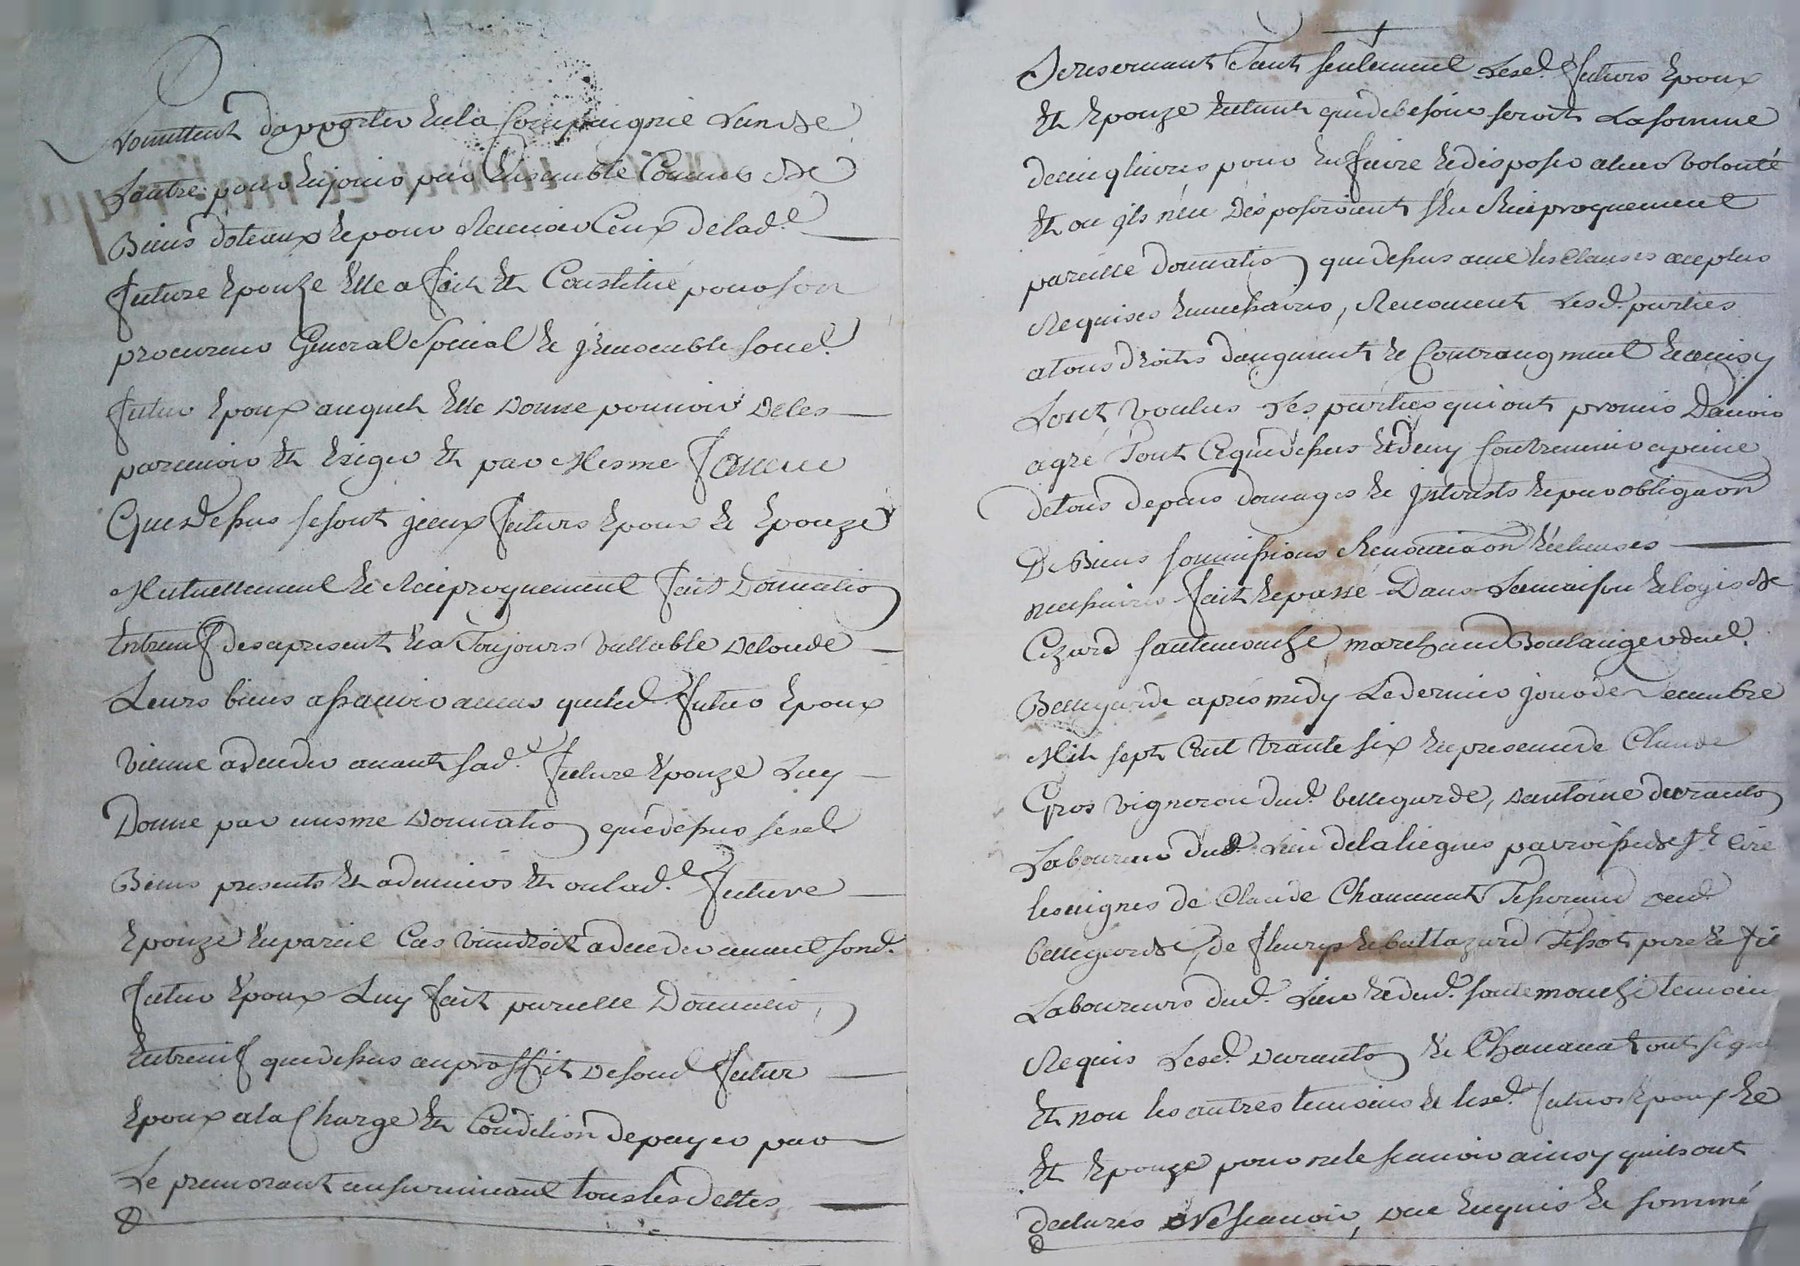 Promettent d'apporter en la Compaignie L'un de
L'autre pour en jouir par Ensemble Comme de
Biens dotaux Et pour Recevoir Ceux de lad.e
future Epouze Elle a fait Et Constitué pour son
procureur General Special Et jrrevocable soud.
futur Epoux auquel Elle Donne pouvoir De les
parcevoir Et Exiger Et par Mesme
Que Dessus se sont jceux futurs Epoux Et Epouze
Mutuellement Et Reciproquement fait Donnation
Entreuif des apresent Et a Toujours Vallable De tous
Leurs biens assavoir au cas que led. futur Epoux
Vienne a deceder avant sad.e future Epouze Luy
Donne par mesme Donnation que dessus sesd.
Biens presents Et advenirs Et ou lad.e future
Epouze En pareil Cas Viendroit a deceder avant sond.
futur Epoux Luy fait pareille Donnation
Entreuif que dessus au proffit De soud. futur
Epoux a la Charge Et Condition de payer par
Le premourant au survivant tous les dettes
Se reservant Tant seulement Lesd. futurs Epoux
Et Epouze Entant que de besoin seroit La somme
de cinq livres pour En faire Et disposer a leur Volonté
Et ou jls n'en Disposeroient s'en Reciproquement
pareille donnation que dessus avec les Clauses au plus
Requises Et necessaires, Renoncent Lesd. parties
a tous droits d'augment Et Contraugment Et ainsy
L'ont Voulus Les parties qui ont promis D'avoir
agré Tout Ce que dessus Et d'y Contrevenir a peine
de tous depens domages Et jnterests Et par obliga͠on
De Biens soumissions Renoncia͠on Et clauses
necessaires fait Et passé Dans La maison Et logis de
Cezard sautemouche marchand Boulanger dud.
Bellegarde apres midy Le dernier jour de Decembre
Mil sept Cent trante six En presence de Claude
Gros vigneron dud. bellegarde, d'antoine duranton
Laboureur dud. Lieu de la liegue parroisse de St. Cire
les vignes de Claude Chauanat Tisserand dud.
bellegarde, de fleury Et baltazard Tissot pere Et fil
Laboureurs dud. Lieu Et dud. sautemouche temoins
Requis Lesd. Duranton Et Chauanat ont signé
Et non les autres temoins Et lesd. futurs Epoux Et
Et Epouze pour ne le scavoir ainsy qu'ils ont
declarés Ne scavoir, De ce Enquis Et sommé